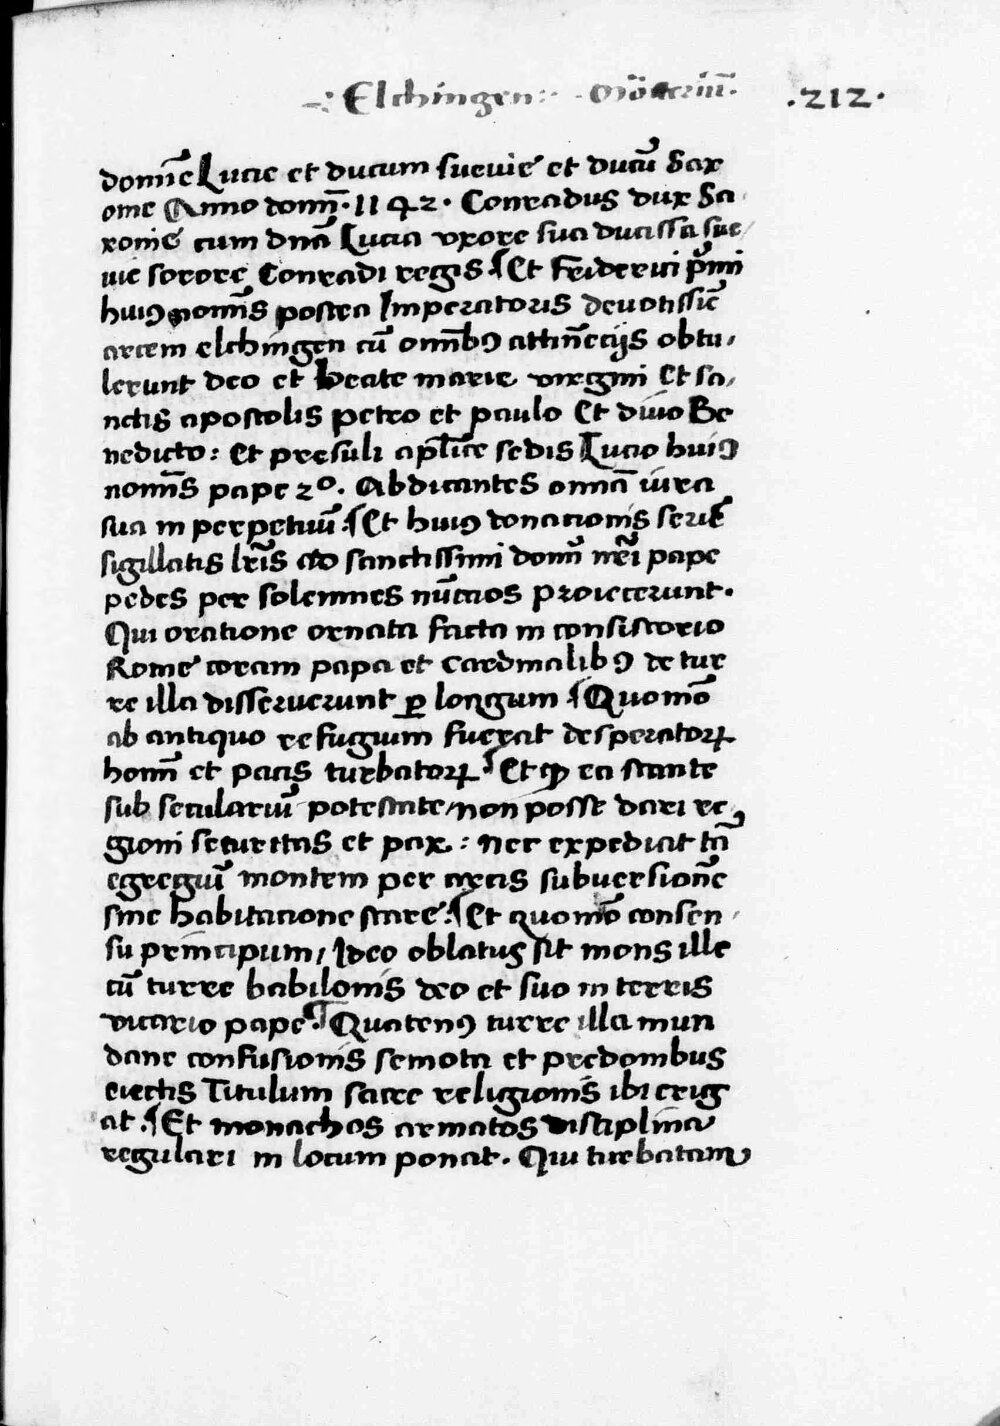 -: Elchingen :- Mo̅steriu̅. .212.
domn̅e Lucie et ducum suevie et ducu̅ Sax
onie Anno domn̅. 1142. Conradus dux Sa
xonie cum dn̅a Lucia vxore sua ducissa sue/
uie sorore Conradi regis ¶ Et Friderici p̅mi
huiꝰ nomn̅s postea Imperatoris deuotissie̅
arcem elchingen cu̅ omn̅bꝰ attine̅cijs obtu,
lerunt deo et beate marie virgini et sa,
nctis apostolis petro et paulo et diuo Be
nedicto: et presuli apl̅ice sedis Lucio huiꝰ
nomn̅s pape 2º. Abdicantes omn̅a iura
sua in perpetuu̅. ¶ Et huiꝰ donationis serie̅
sigillatis lr̅is ad sanctissimi domn̅ nr̅i pape
pedes per solemnes nu̅ctios proiecerunt.
Qui oratione ornata facta in consistorio
Rome coram papa et cardinalibꝰ de tur
re illa disseruerunt ꝑ longum ¶ Quomo̅
ab antiquo refugium fuerat desperatoꝝ
homn̅ et pacis turbatoꝝ ¶ Et ꝙ ea stante
sub seculariu̅ potestate/non posse dari re,
gioni securitas et pax: nec expediat ta̅
egregiu̅ montem per arcis subuersione̅
sine habitatione stare. ¶ Et quomo̅ consen,
su principum/ Ideo oblatus sit mons ille
cu̅ turre babilonis deo et suo in terris
vicario pape. ¶ Quatenꝰ turre illa mun
dane confusionis semota et predonibus
eiectis Titulum sacre religionis ibi erig
at. ¶ Et monachos armatos disciplina
regulari in locum ponat. Qui turbatam